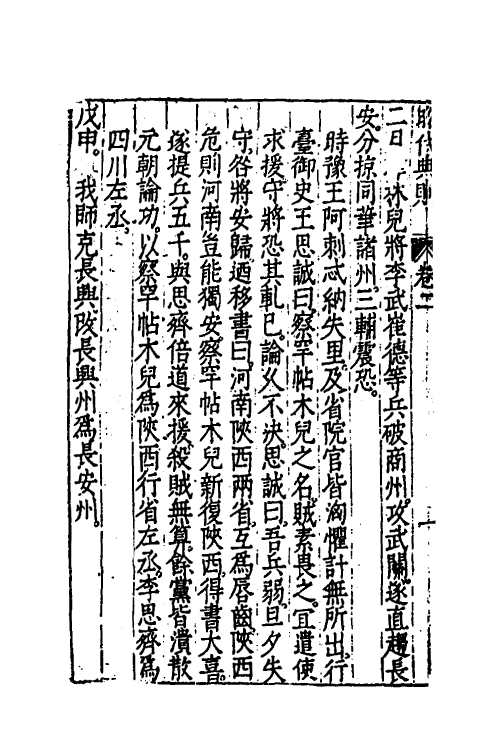 昭代典則 卷二 一
二日 林兒將李武崔德等兵破商州。攻武關。遂直趨長
安。分掠同華諸州。三輔震恐。
時豫王阿剌忒納失里。及省院官皆洶懼計無所出。行
臺御史王思誠曰。察罕帖木兒之名。賊素畏之。宜遣使
求援。守將恐其軋已。論久不決。思誠曰。吾兵弱。旦夕失
守。咎將安歸。迺移書曰。河南陝西兩省。互爲唇齒。陝西
危則河南豈能獨安。察罕帖木兒新復陝西。得書大喜。
遂提兵五千。與思齊倍道來援。殺賊無算。餘黨皆潰散
元朝論功。以察罕帖木兒爲陝西行省左丞。李思齊爲
四川左丞。
戊申。 我師克長興改長興州爲長安州。